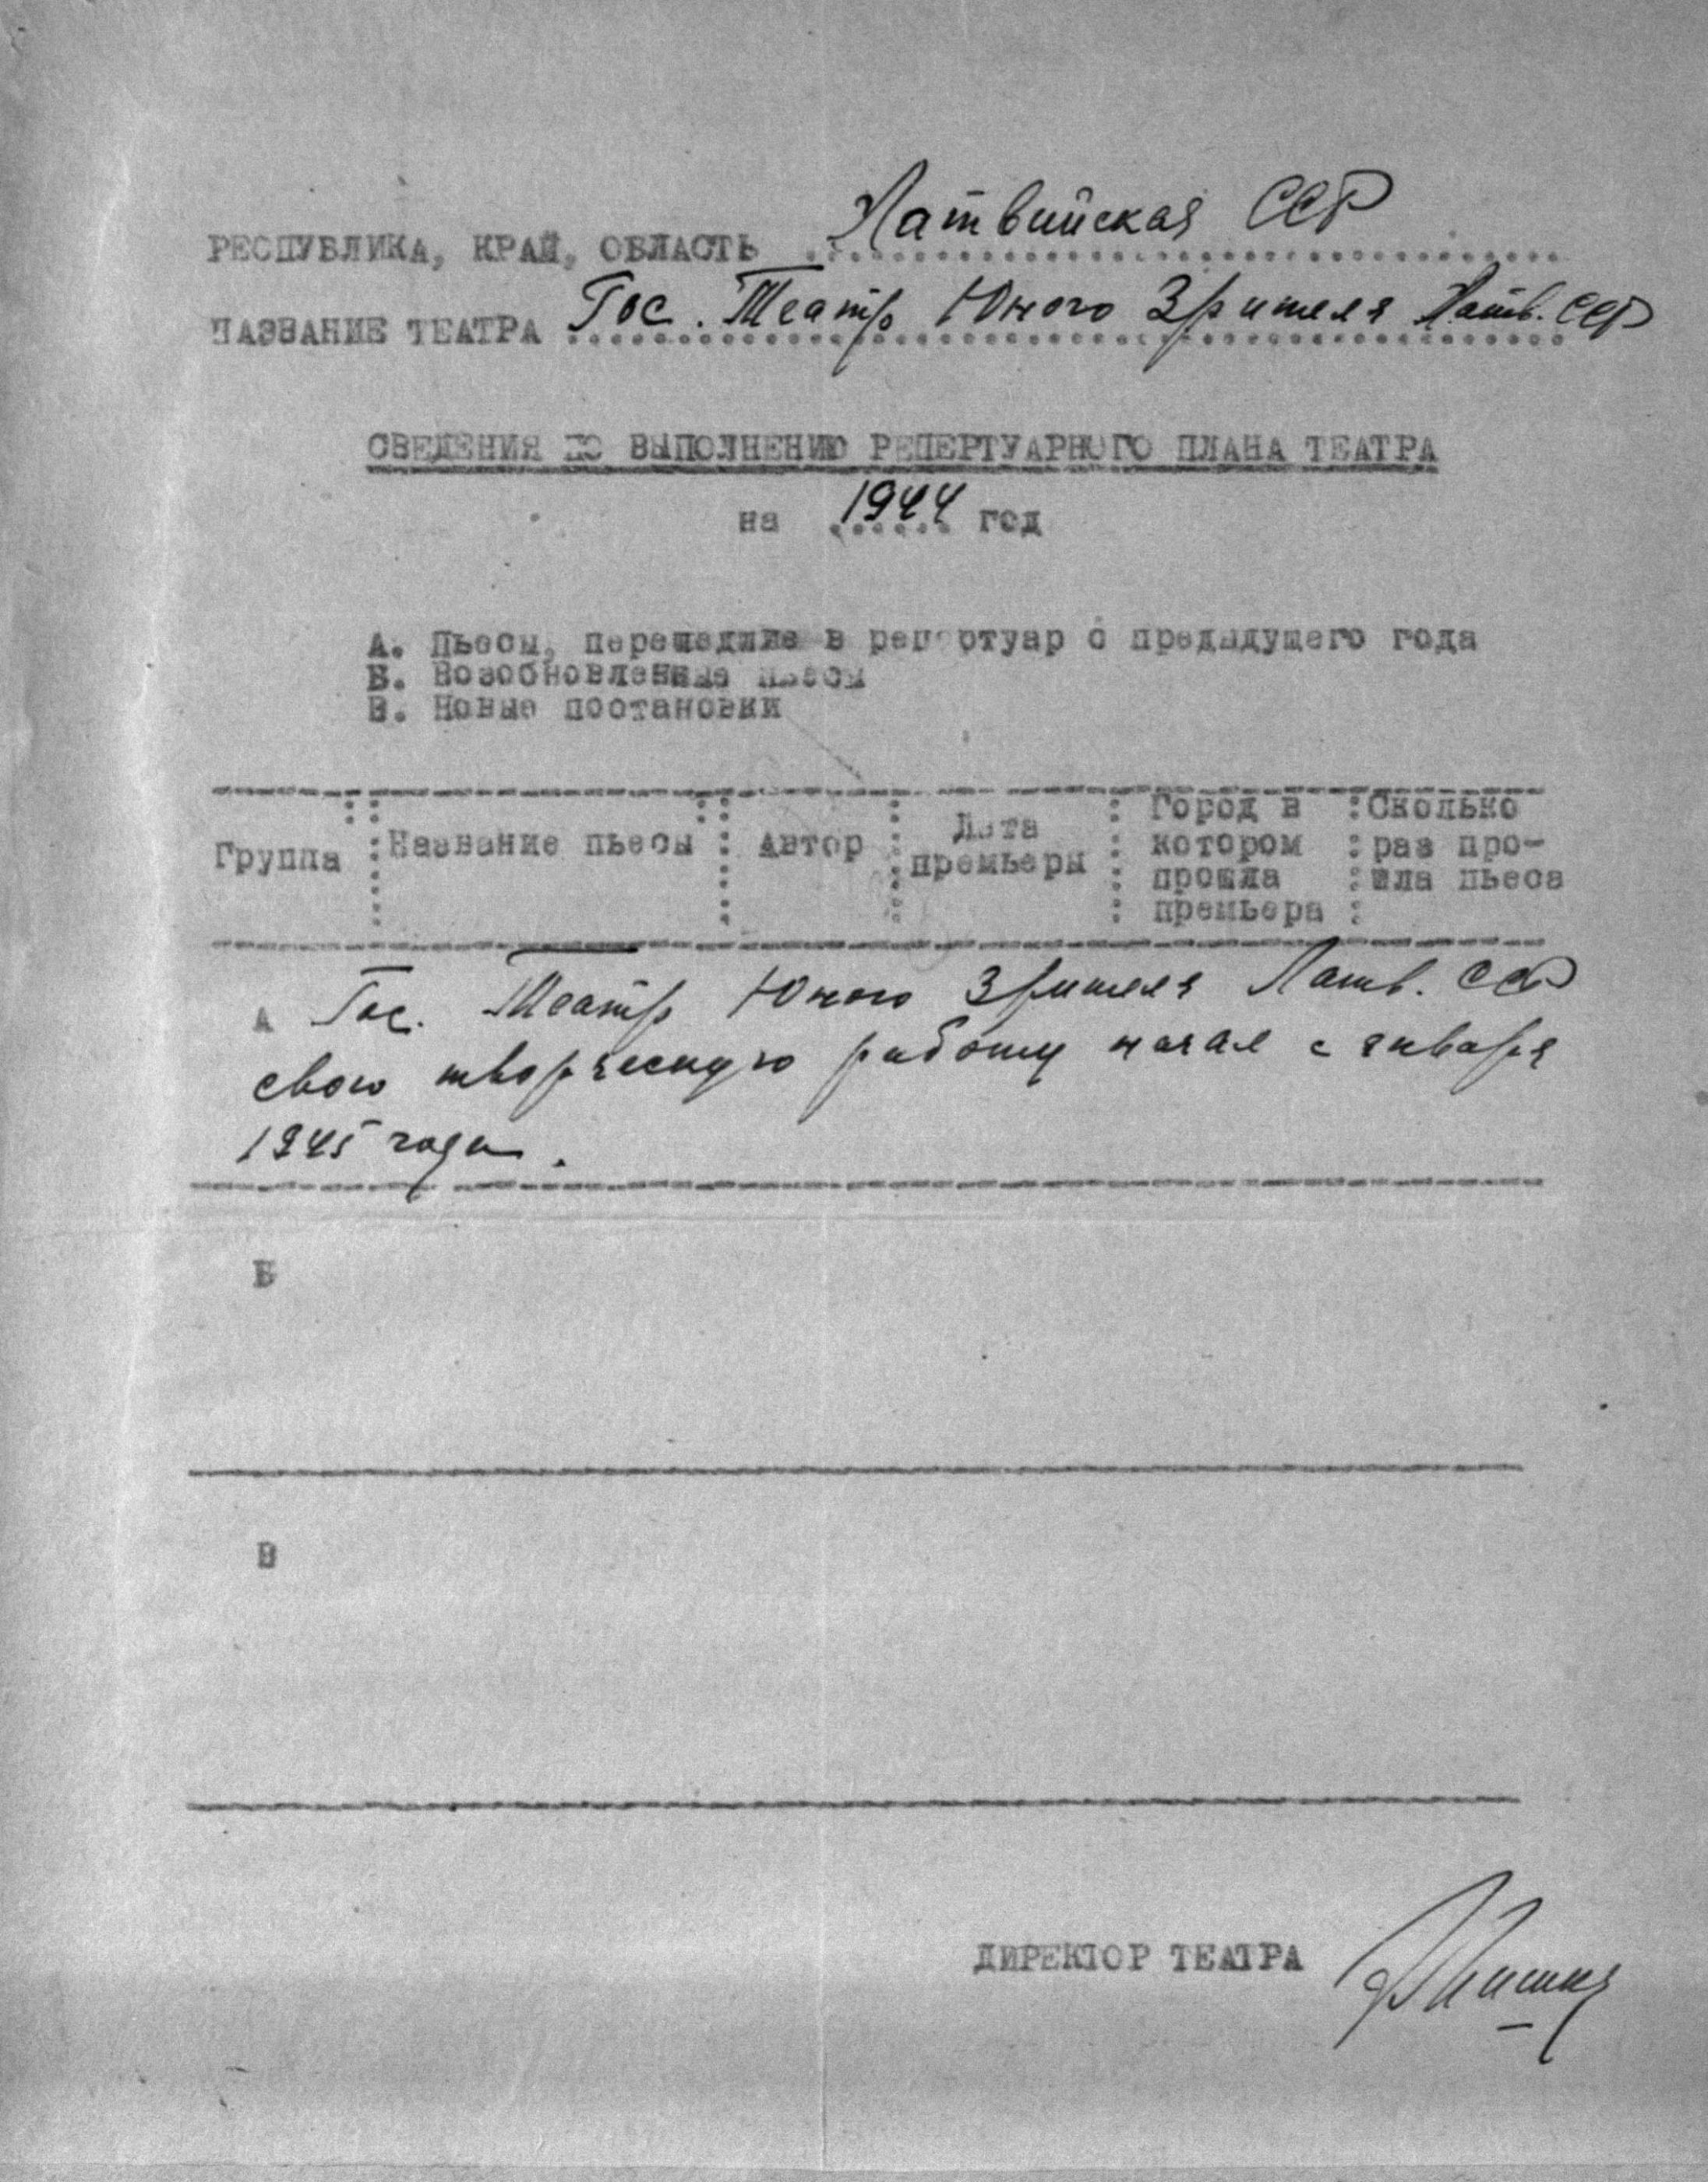 РЕСПУБЛИКА, КРАЙ, ОБЛАСТЬ Латвийская ССР
НАЗВАНИЕ ТЕАТРА Гос. Театр Юного Зрителя Латв. ССР
СВЕДЕНИЯ ПО ВЫПОЛНЕНИЮ РЕПЕРТУАРНОГО ПЛАНА ТЕАТРА
на 1944 год
А. Пьесы, перешедшие в репертуар с предыдущего года
Б. Возобновленные пьесы
В. Новые постановки
Группа : Название пьесы : Автор : Дата премьеры : Город в котором прошла премьера : Сколько раз про-шла пьеса
А Гос. Театр Юного Зрителя Латв. ССР
свою творческую работу начал с января
1945 года.
Б
В
ДИРЕКТОР ТЕАТРА